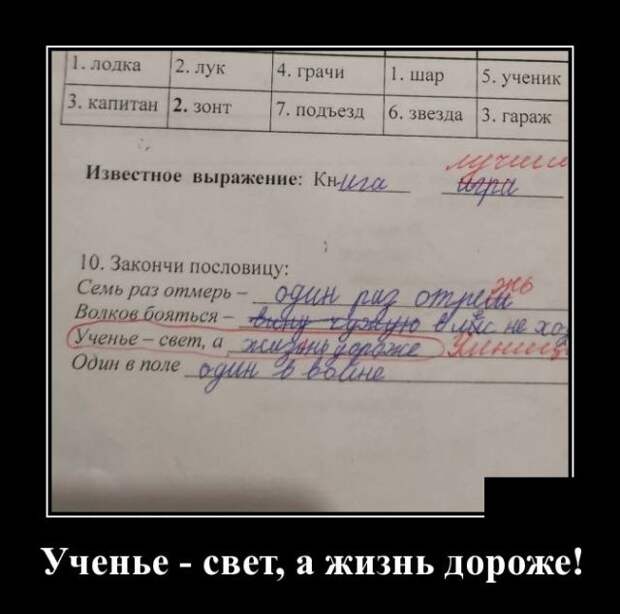 1. лодка 2. лук 4. грачи 1. шар 5. ученик
3. капитан 2. зонт 7. подъезд 6. звезда 3. гараж
лучши
Известное выражение: Книга игра
10. Закончи пословицу:
жь
Семь раз отмерь – один раз отрем
Волков бояться – в лес не хо
Ученье – свет, а жизнь дороже
Один в поле один в воине
Ученье - свет, а жизнь дороже!